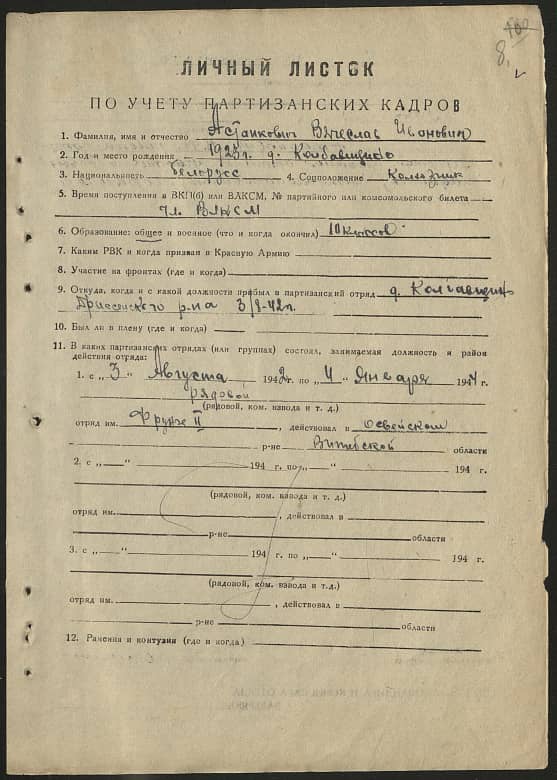 100
8.
ЛИЧНЫЙ ЛИСТОК
ПО УЧЕТУ ПАРТИЗАНСКИХ КАДРОВ
1. Фамилия, имя и отчество Астапкович Вячеслав Иванович
2. Год и место рождения 1925 г. д.
3. Национальность белорусс 4. Соцположение Колхозник
5. Время поступления в ВКП(б) или ВЛКСМ, № партийного или комсомольского билета
Чл. ВЛКСМ
6. Образование: общее и военное (что и когда окончил) 10 классов
7. Каким РВК и когда призван в Красную Армию
8. Участие на фронтах (где и когда)
9. Откуда, когда и с какой должности прибыл в партизанский отряд д.
р-на 3/8-42 г.
10. Был ли в плену (где и когда)
11. В каких партизанских отрядах (или группах) состоял, занимаемая должность и район
действия отряда:
1. с „3" Августа 1942 г. по „4" Января 1944 г.
рядовой
(рядовой, ком. взвода и т. д.)
отряд им. Фрунзе II, действовал в Освейском
р-не Витебской области
2. с „ " 194 г. по „ " 194 г.
(рядовой, ком. взвода и т. д.)
отряд им. , действовал в
р-не области
3. с „ " 194 г. по „ " 194 г.
(рядовой, ком. взвода и т.д.)
отряд им. , действовал в
р-не области
12. Ранения и контузия (где и когда)